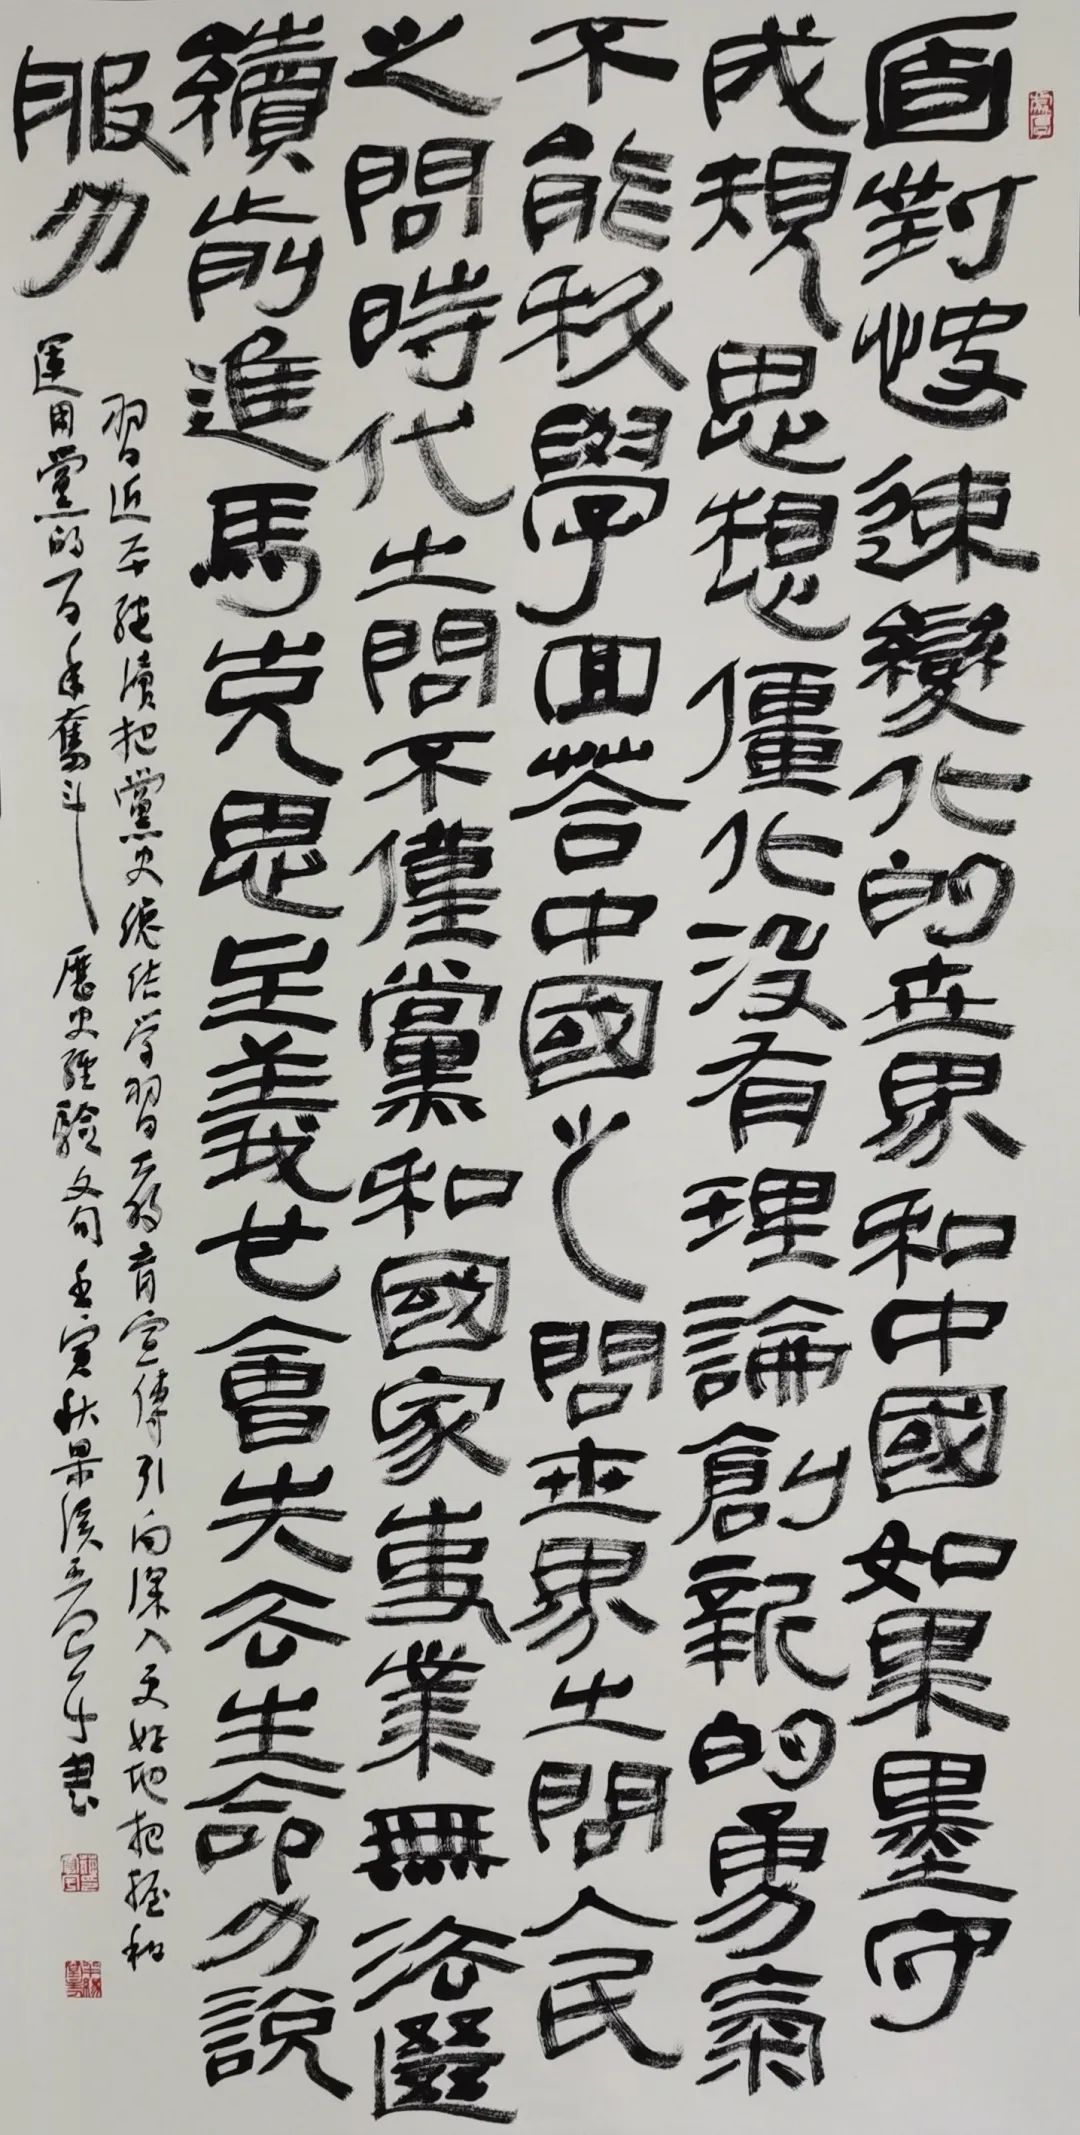 面對快速變化的世界和中國如果墨守
成規思想僵化没有理論創新的勇氣
不能科學回答中國之問世界之問人民
之問時代之問不僅黨和國家事業無法繼
續前進馬克思主義也會失去生命力説
服力
習近平繼續把黨史總結學習教育宣傳引向深入更好地把握和
運用黨的百年奮斗歷史經驗文句壬寅秋吴溪
書